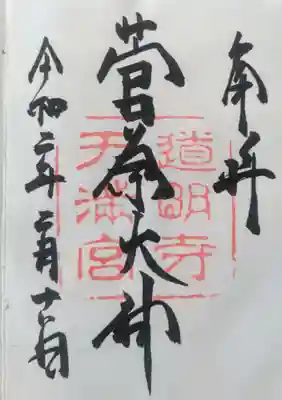 奉拝
菅原大神
道明寺
天満宮
令和二年二月十六日